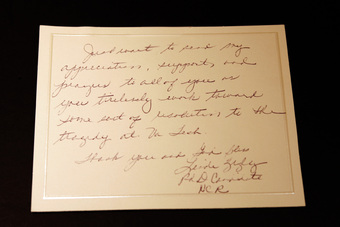 Just want to send my
appreciation, supports and
prayers to all of you as
you tirelessly work toward
some sort of resolution to the
tragedy at Va Tech
Thank you and God Bless
PhD Candidate